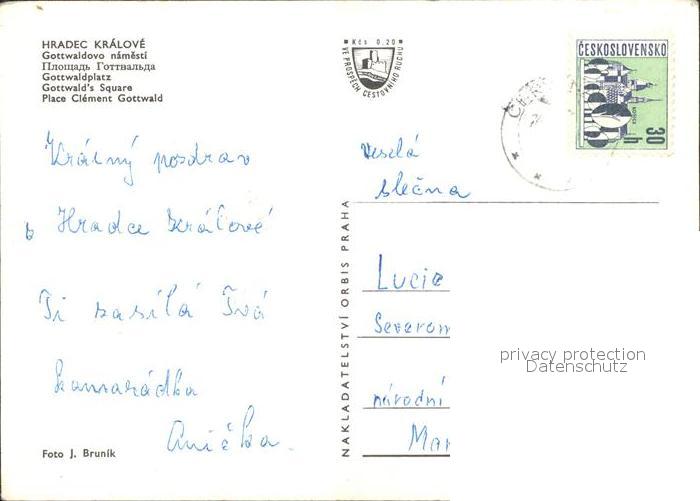 HRADEC KRÁLOVÉ
Gottwaldovo náměstí
Площадь Готтвальда
Gottwaldplatz
Gottwald's Square
Place Clément Gottwald
Kčs 0.20
VE PROSPĚCH CESTOVNÍHO RUCHU
ČESKOSLOVENSKO
30 h
Krásný pozdrav
z Hradce Králové
Ti zasílá Tvá
kamarádka
Anička.
Veselá
slečna
Lucie
národní
Mar
NAKLADATELSTVÍ ORBIS PRAHA
privacy protection
Datenschutz
Foto J. Bruník